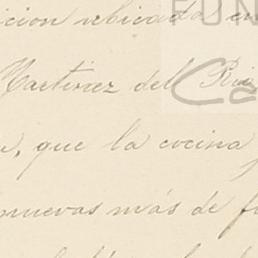 FUN
icion ubicada en
Martinez del Rio
Ca
, que la cocina
nuevas más de f